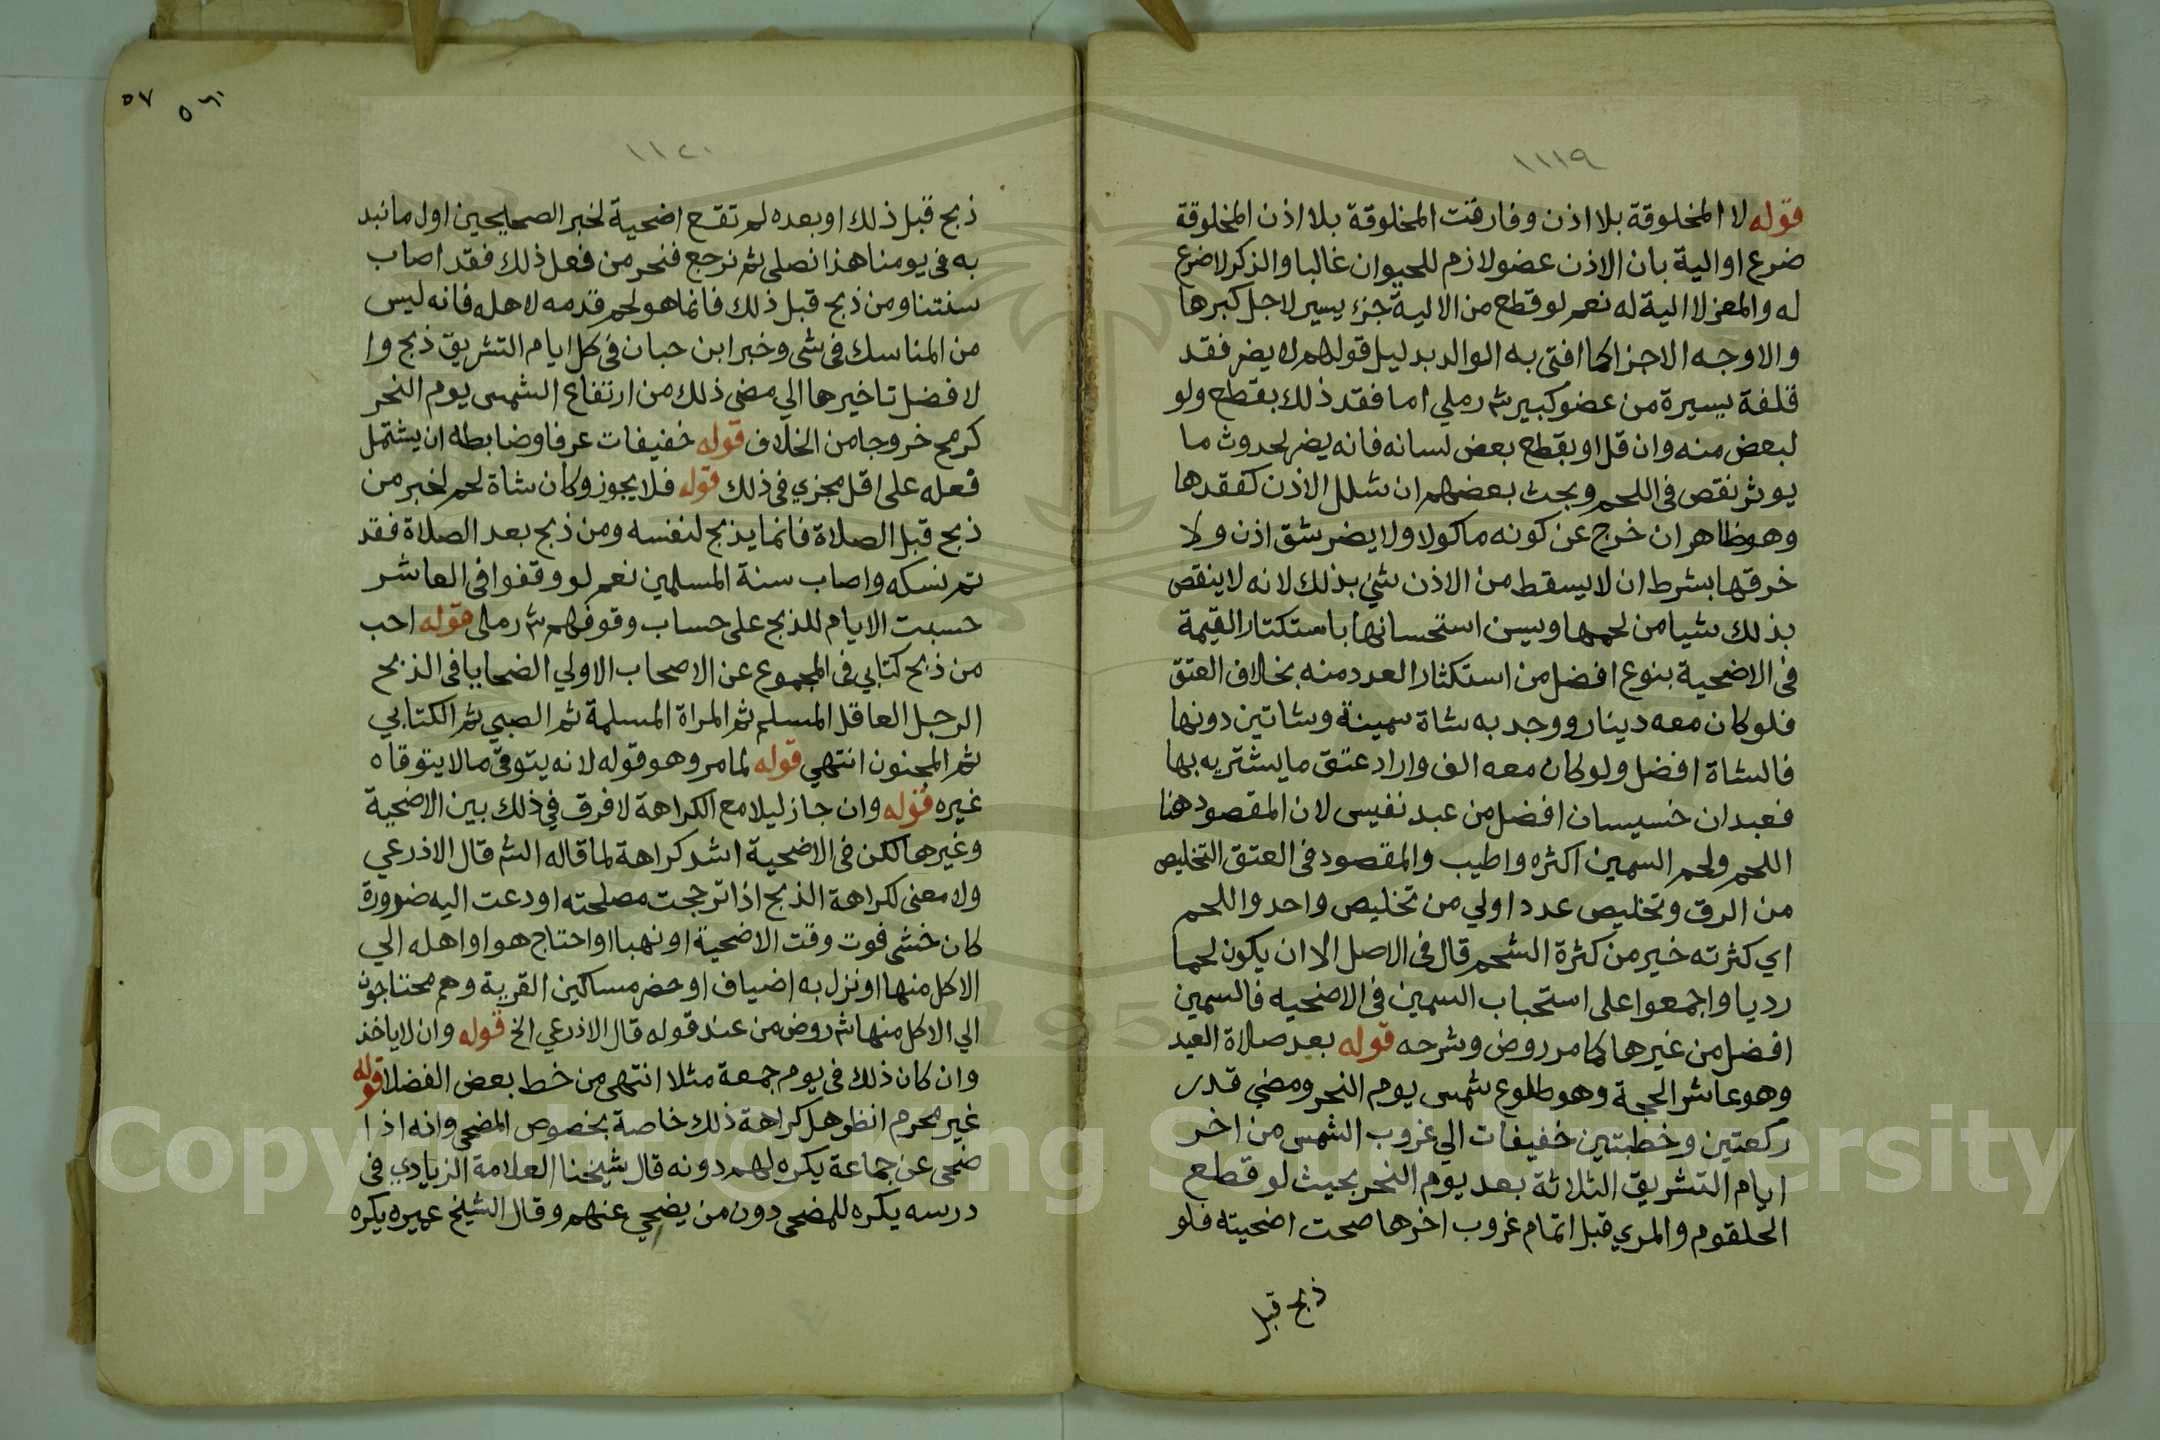 ١١١٩
قوله لا المخلوقة بلا اذن وفارقت المخلوقة بلا اذن المخلوقة
ضرع او الية بان الاذن عضو لازم للحيوان غالبا والذكر لا ضرع
له والمعز لا الية له نعم لو قطع من الالية جزء يسير لاجل كبرها
والاوجه الاجزا كما افتى به الوالد بدليل قولهم لا يضر فقد
قلفة يسيرة من عضو كبير شر رملي اما فقد ذلك بقطع ولو
لبعض منه وان قل او بقطع بعض لسانه فانه يضر لحدوث ما
يوثر نقص في اللحم وبحث بعضهم ان شلل الاذن كفقدها
وهو ظاهر ان خرج عن كونه ماكولا ولا يضر شق اذن ولا
خرقها بشرط ان لا يسقط من الاذن شي بذلك لانه لا ينقص
بذلك شيا من لحمها ويسن استحسانها باستكثار القيمة
في الاضحية بنوع افضل من استكثار العدد منه بخلاف العتق
فلو كان معه دينار ووجد به شاة سمينة وشاتين دونها
فالشاة افضل ولو كان معه الف واراد عتق ما يشتريه بها
فعبدان خسيسان افضل من عبد نفيس لان المقصود هنا
اللحم ولحم السمين اكثره واطيب والمقصود في العتق التخليص
من الرق وتخليص عدد اولي من تخليص واحد واللحم
اي كثرته خير من كثرة الشحم قال في الاصل الا ان يكون لحما
رديا واجمعوا على استحباب السمين في الاضحيه فالسمين
افضل من غيرها كما مر روض وشرحه قوله بعد صلاة العيد
وهو عاشر الحجة وهو طلوع شمس يوم النحر ومضي قدر
ركعتين وخطبتين خفيفات الي غروب الشمس من اخر
ايام التشريق الثلاثة بعد يوم النحر بحيث لو قطع
الحلقوم والمري قبل اتمام غروب اخرها صحت اضحيته فلو
ذبح قبل
٥٧
٥٦٠
١١٢٠
ذبح قبل ذلك او بعده لم تقع اضحية لخبر الصحيحين اول ما نبد
به في يومنا هذا نصلي ثم نرجع فننحر من فعل ذلك فقد اصاب
سنتنا ومن ذبح قبل ذلك فانما هو لحم قدمه لاهله فانه ليس
من المناسك في شي وخبر ابن حبان في كل ايام التشريق ذبح وا
لافضل تاخيرها الي مضي ذلك من ارتفاع الشمس يوم النحر
كرمح خروجا من الخلاف قوله خفيفات عرفا وضابطه ان يشتمل
فعله على اقل مجزي في ذلك قوله فلا يجوز وكان شاة لحم لخبر من
ذبح قبل الصلاة فانما يذبح لنفسه ومن ذبح بعد الصلاة فقد
تم نسكه واصاب سنة المسلمين نعم لو وقفوا في العاشر
حسبت الايام للذبح على حساب وقوفهم شر رملي قوله احب
من ذبح كتابي في المجموع عن الاصحاب الاولي الضحايا في الذبح
الرجل العاقل المسلم ثم المراة المسلمة ثم الصبي ثم الكتابي
ثم المجنون انتهي قوله لما مر وهو قوله لانه يتوقى ما لا يتوقاه
غيره قوله وان جاز ليلا مع الكراهة لا فرق في ذلك بين الاضحية
وغيرها لكن في الاضحية اشد كراهة لما قاله الشر قال الاذرعي
ولا معنى لكراهة الذبح اذا ترجحت مصلحته او دعت اليه ضرورة
كان خشي فوت وقت الاضحية او نهبا او احتاج هو او اهله الي
الاكل منها او نزل به اضياف او حضر مساكين القرية وهم محتاجون
الي الاكل منها شر روض من عند قوله قال الاذرعي الخ قوله وان لا ياخذ
وان كان ذلك في يوم جمعة مثلا انتهى من خط بعض الفضلا قوله
غير محرم انظر هل كراهة ذلك خاصة بخصوص المضحي وانه اذا
ضحى عن جماعة يكره لهم دونه قال شيخنا العلامة الزيادي في
درسه يكره للمضحى دون من يضحي عنهم وقال الشيخ عميره يكره
Copyright © King Saud University
195